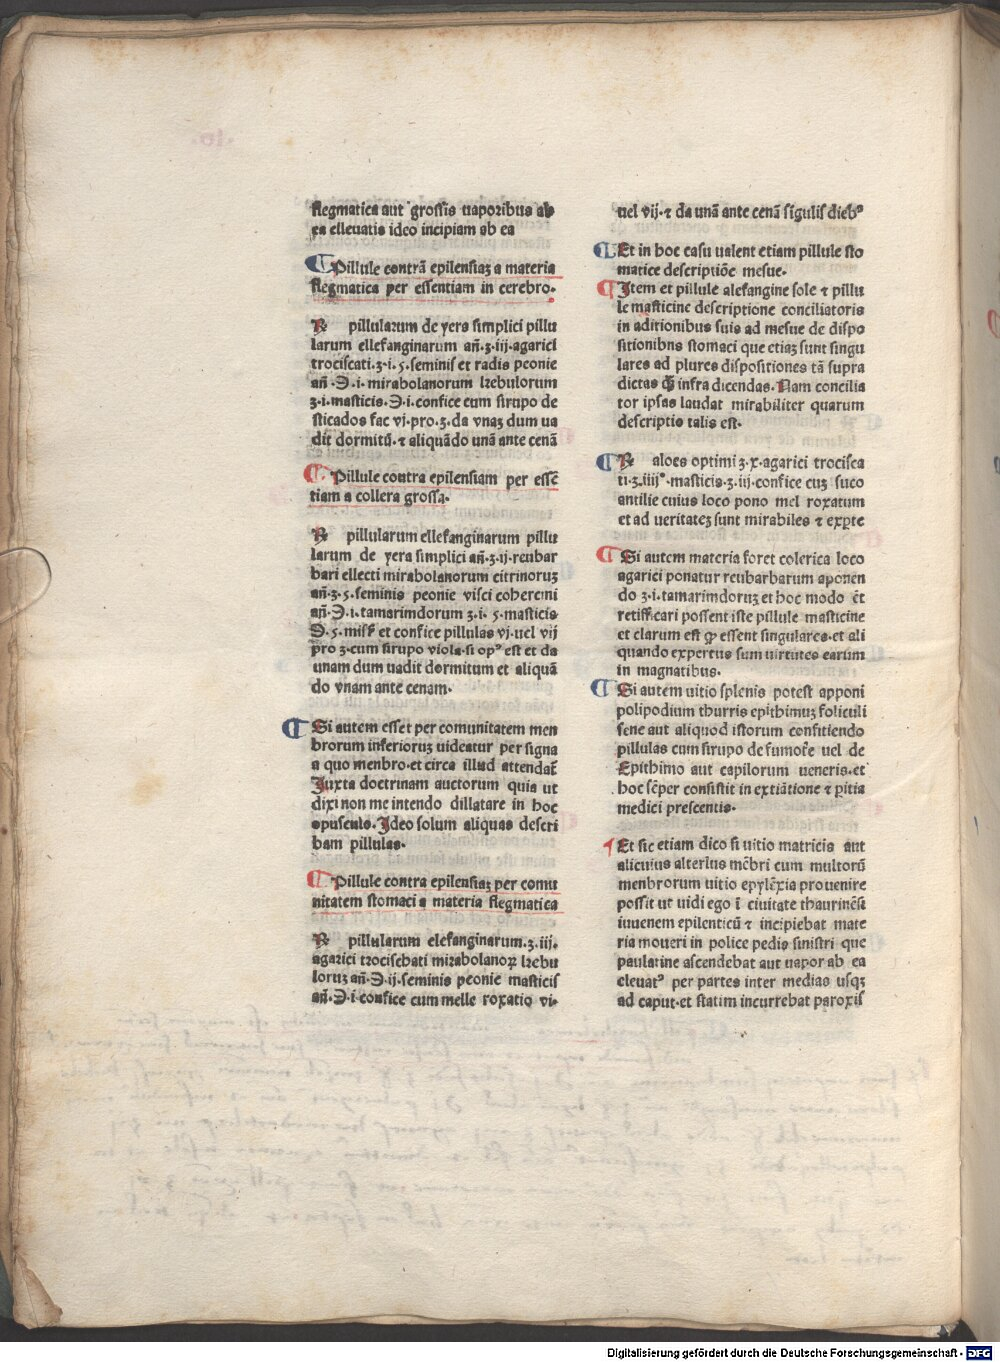 flegmatica aut grossis uaporibus ab
ea elleuatis ideo incipiam ab ea
¶ Pillule contrā epilensiaʒ a materia
flegmatica per essentiam in cerebro.
℞ pillularum de yera simplici pillu
larum ellefanginarum añ.ʒ.iij.agarici
trociscati.ʒ.i.5.seminis et radis peonie
añ.℈.i.mirabolanorum kebulorum
ʒ.i.masticis.℈.i.confice cum sirupo de
sticados fac vj.pro.ʒ.da vnaʒ dum ua
dit dormitū.⁊ aliquādo unā ante cenā
¶ Pillule contra epilensiam per essē
tiam a collera grossa.
℞ pillularum ellefanginarum pillu
larum de yera simplici añ.ʒ.ij.reubar
bari ellecti mirabolanorum citrinoruʒ
añ.ʒ.5.seminis peonie visci coherenti
añ.℈.i.tamarimdorum ʒ.i. 5.masticis
℈.5.misc̄ et confice pillulas vj.uel vij
pro ʒ.cum sirupo viola.si opꝰ est et da
unam dum uadit dormitum et aliquā
do vnam ante cenam.
¶ Si autem esset per comunitatem men
brorum inferioruʒ uideatur per signa
a quo menbro.et circa illud attendat̄
Juxta doctrinam auctorum quia ut
dixi non me intendo dillatare in hoc
opusculo.Ideo solum aliquas descri
bam pillulas.
¶ Pillule contra epilensiaʒ per comu
nitatem stomaci a materia flegmatica
℞ pillularum elefanginarum.ʒ.iij.
agarici trocischati mirabolanoꝝ kebu
loruʒ añ.℈.ij.seminis peonie masticis
añ.℈.i confice cum melle roxatio vi-
uel vij.⁊ da unā ante cenā sīgulis diebꝰ
¶ Et in hoc casu ualent etiam pillule sto
matice descriptiōe mesue.
¶ Item et pillule alefangine sole ⁊ pillu
le masticine descriptione conciliatoris
in aditionibus suis ad mesue de dispo
sitionibus stomaci que etiaʒ sunt singu
lares ad plures dispositiones tā supra
dictas q̄ȝ infra dicendas.Nam concilia
tor ipsas laudat mirabiliter quarum
descriptio talis est.
¶ ℞ aloes optimi ʒ.x.agarici trocisca
ti.ʒ.iiijᵒ.masticis.ʒ.iij.confice cuʒ suco
antilie cuius loco pono mel roxatum
et ad ueritateʒ sunt mirabiles ⁊ expte
¶ Si autem materia foret colerica loco
agarici ponatur reubarbarum aponen
do ʒ.i.tamarimdoruʒ et hoc modo ēt
retificari possent iste pillule masticine
et clarum est ꝙ essent singulares.et ali
quando expertus sum uirtutes earum
in magnatibus.
¶ Si autem uitio splenis potest apponi
polipodium thurris epithimuʒ foliculi
sene aut aliquod istorum confitiendo
pillulas cum sirupo de fumoře uel de
Epithimo aut capilorum ueneris.et
hoc sēper consistit in extiātione ⁊ pitia
medici presentis.
¶ Et sic etiam dico si uitio matricis aut
alicuius alterius mēbri cum multorū
menbrorum uitio epylēxia prouenire
possit ut uidi ego ī ciuitate thaurinēsi
iuuenem epilenticū ⁊ incipiebat mate
ria moueri in police pedis sinistri que
paulatine ascendebat aut uapor ab ea
eleuatꝰ per partes inter medias usqʒ
ad caput.et statim incurrebat paroxis
Digitalisierung gefördert durch die Deutsche Forschungsgemeinschaft - DFG